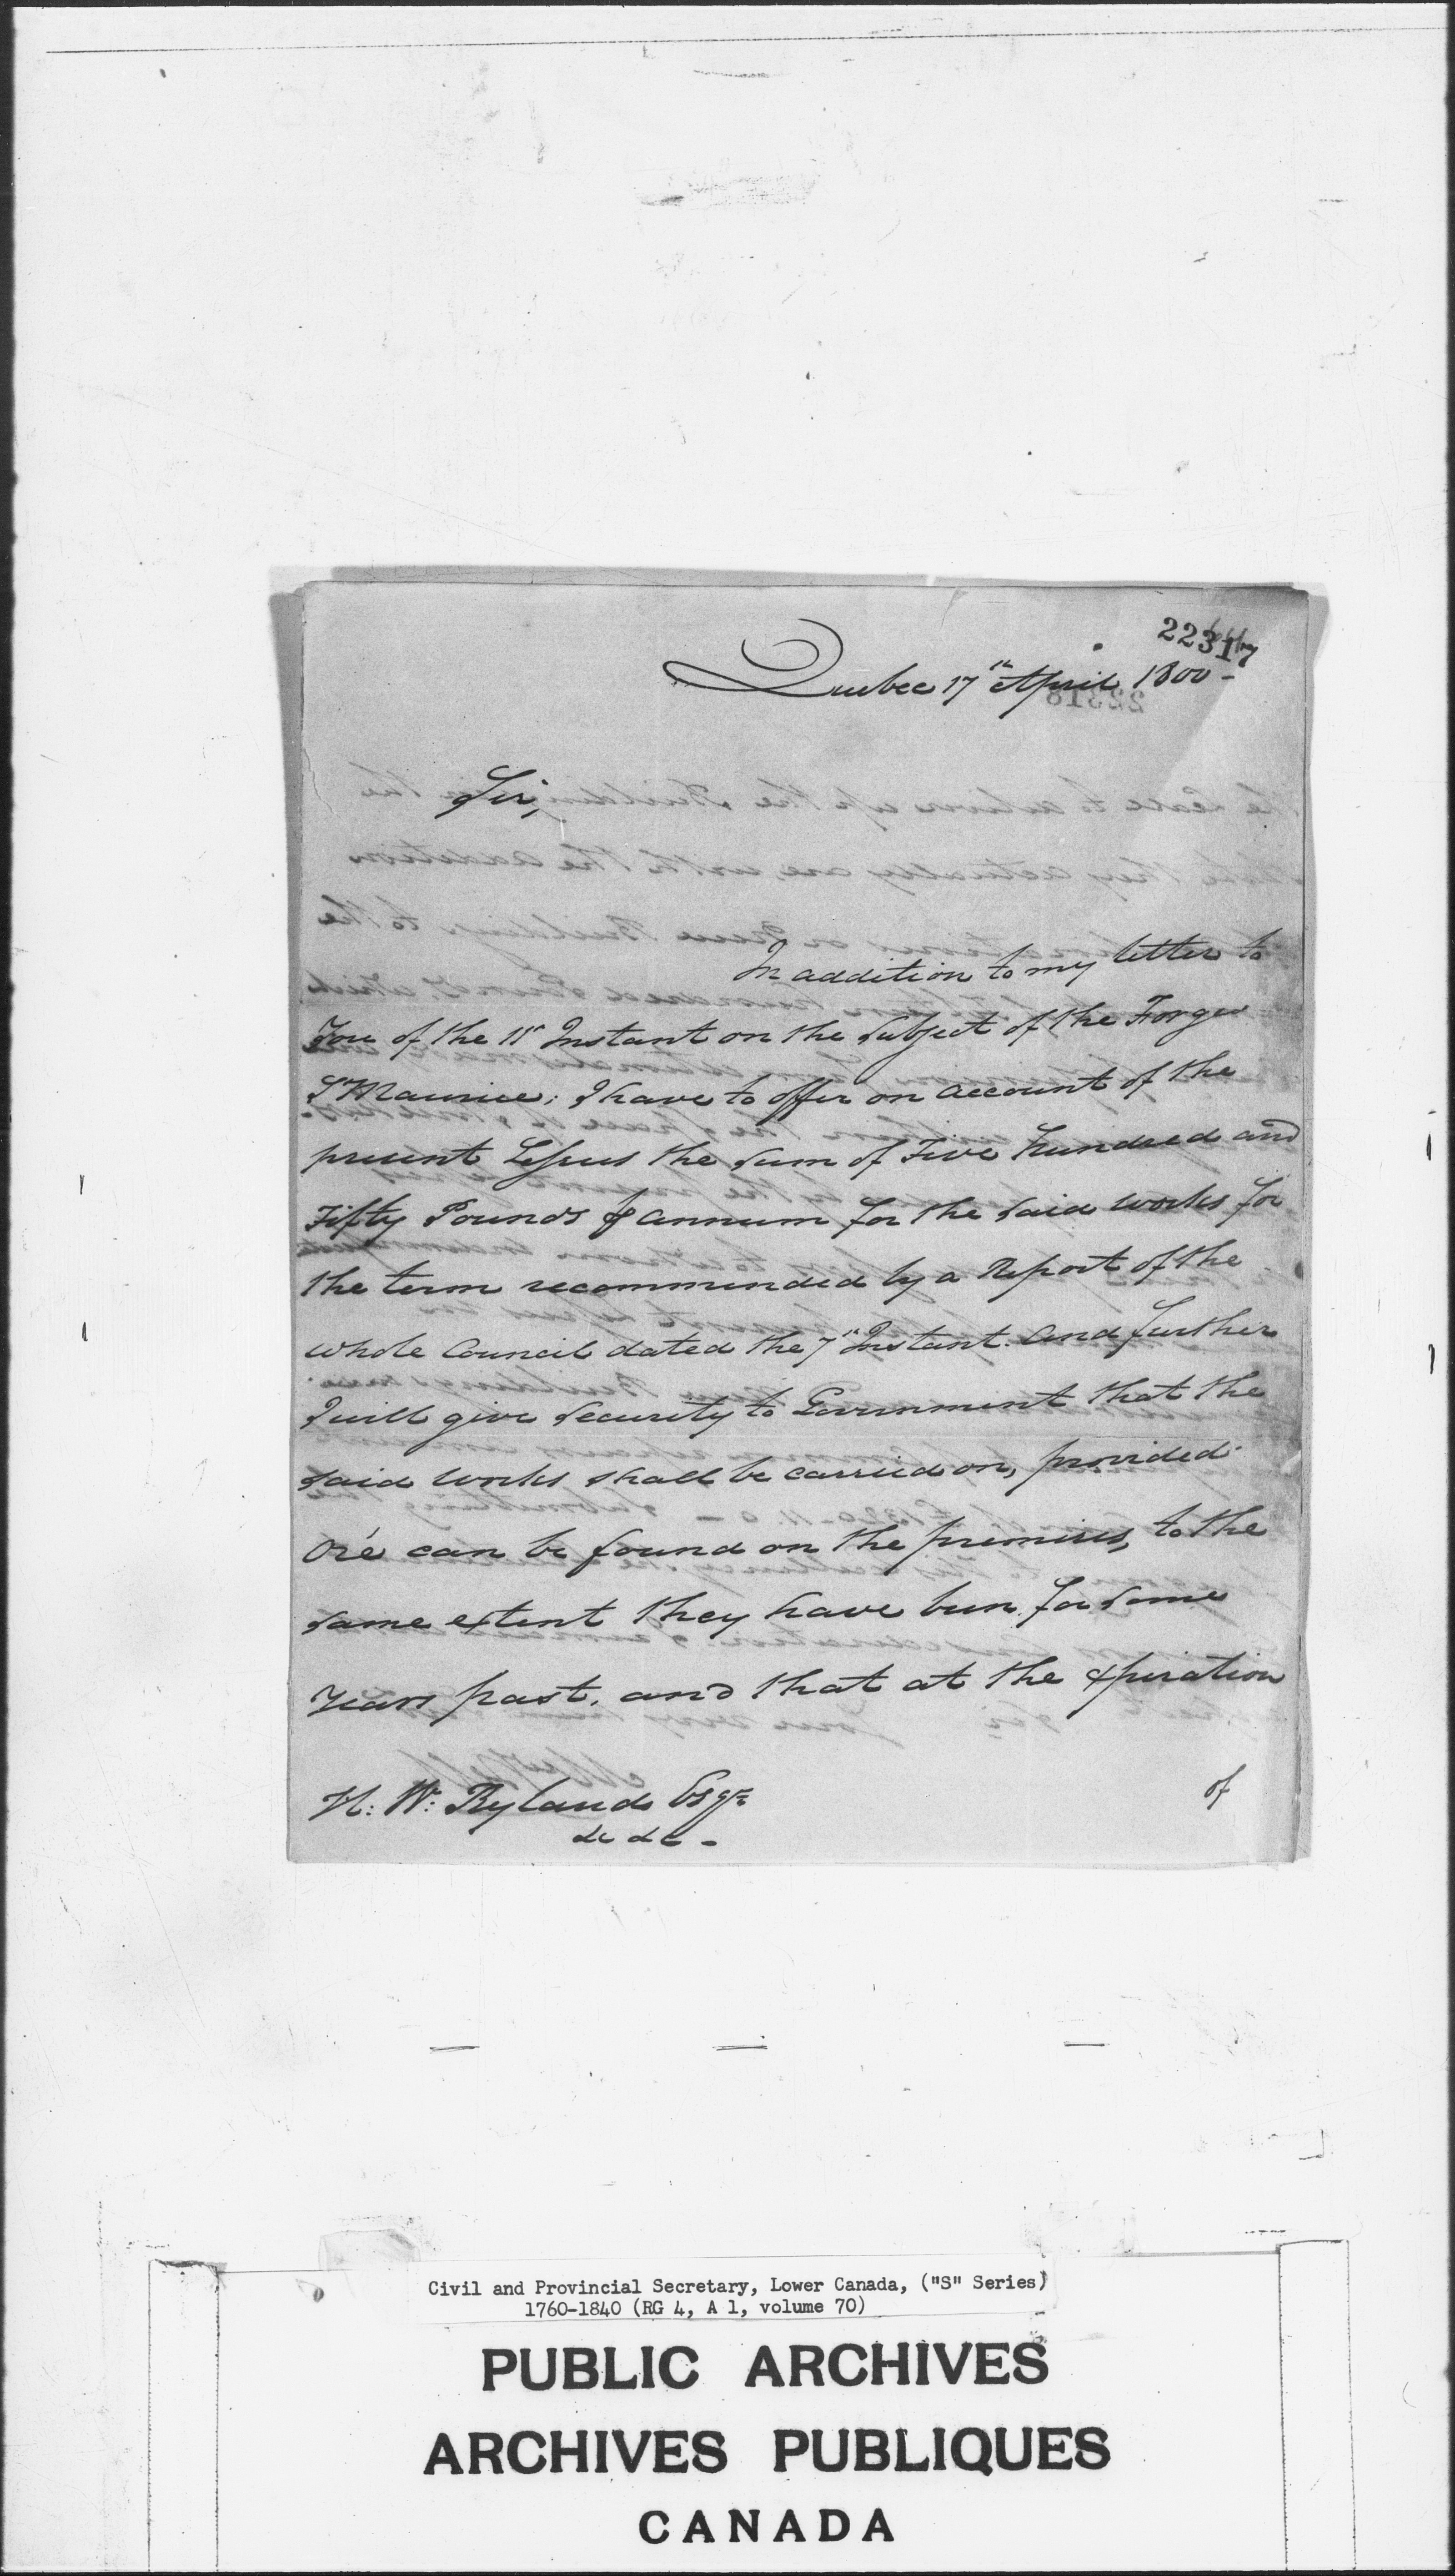 22317
Quebec 17th April 1800-
Sir,
In addition to my letter to
You of the 11th Instant on the subject of the Forges
St Maurice; I have to offer on account of the
present Lessees the sum of Five Hundred and
Fifty Pounds ⅌ annum for the said works for
the term recommended by a Report of the
whole Council dated the 7th Instant. And further
I will give Security to Government that the
said works shall be carried on, provided
Oré can be found on the premises, to the
same extent they have been for some
Years past. and that at the expiration
of
H: W: Ryland Esqr
&c &c -
Civil and Provincial Secretary, Lower Canada, ("S" Series)
1760-1840 (RG 4, A 1, volume 70)
PUBLIC ARCHIVES
ARCHIVES PUBLIQUES
CANADA